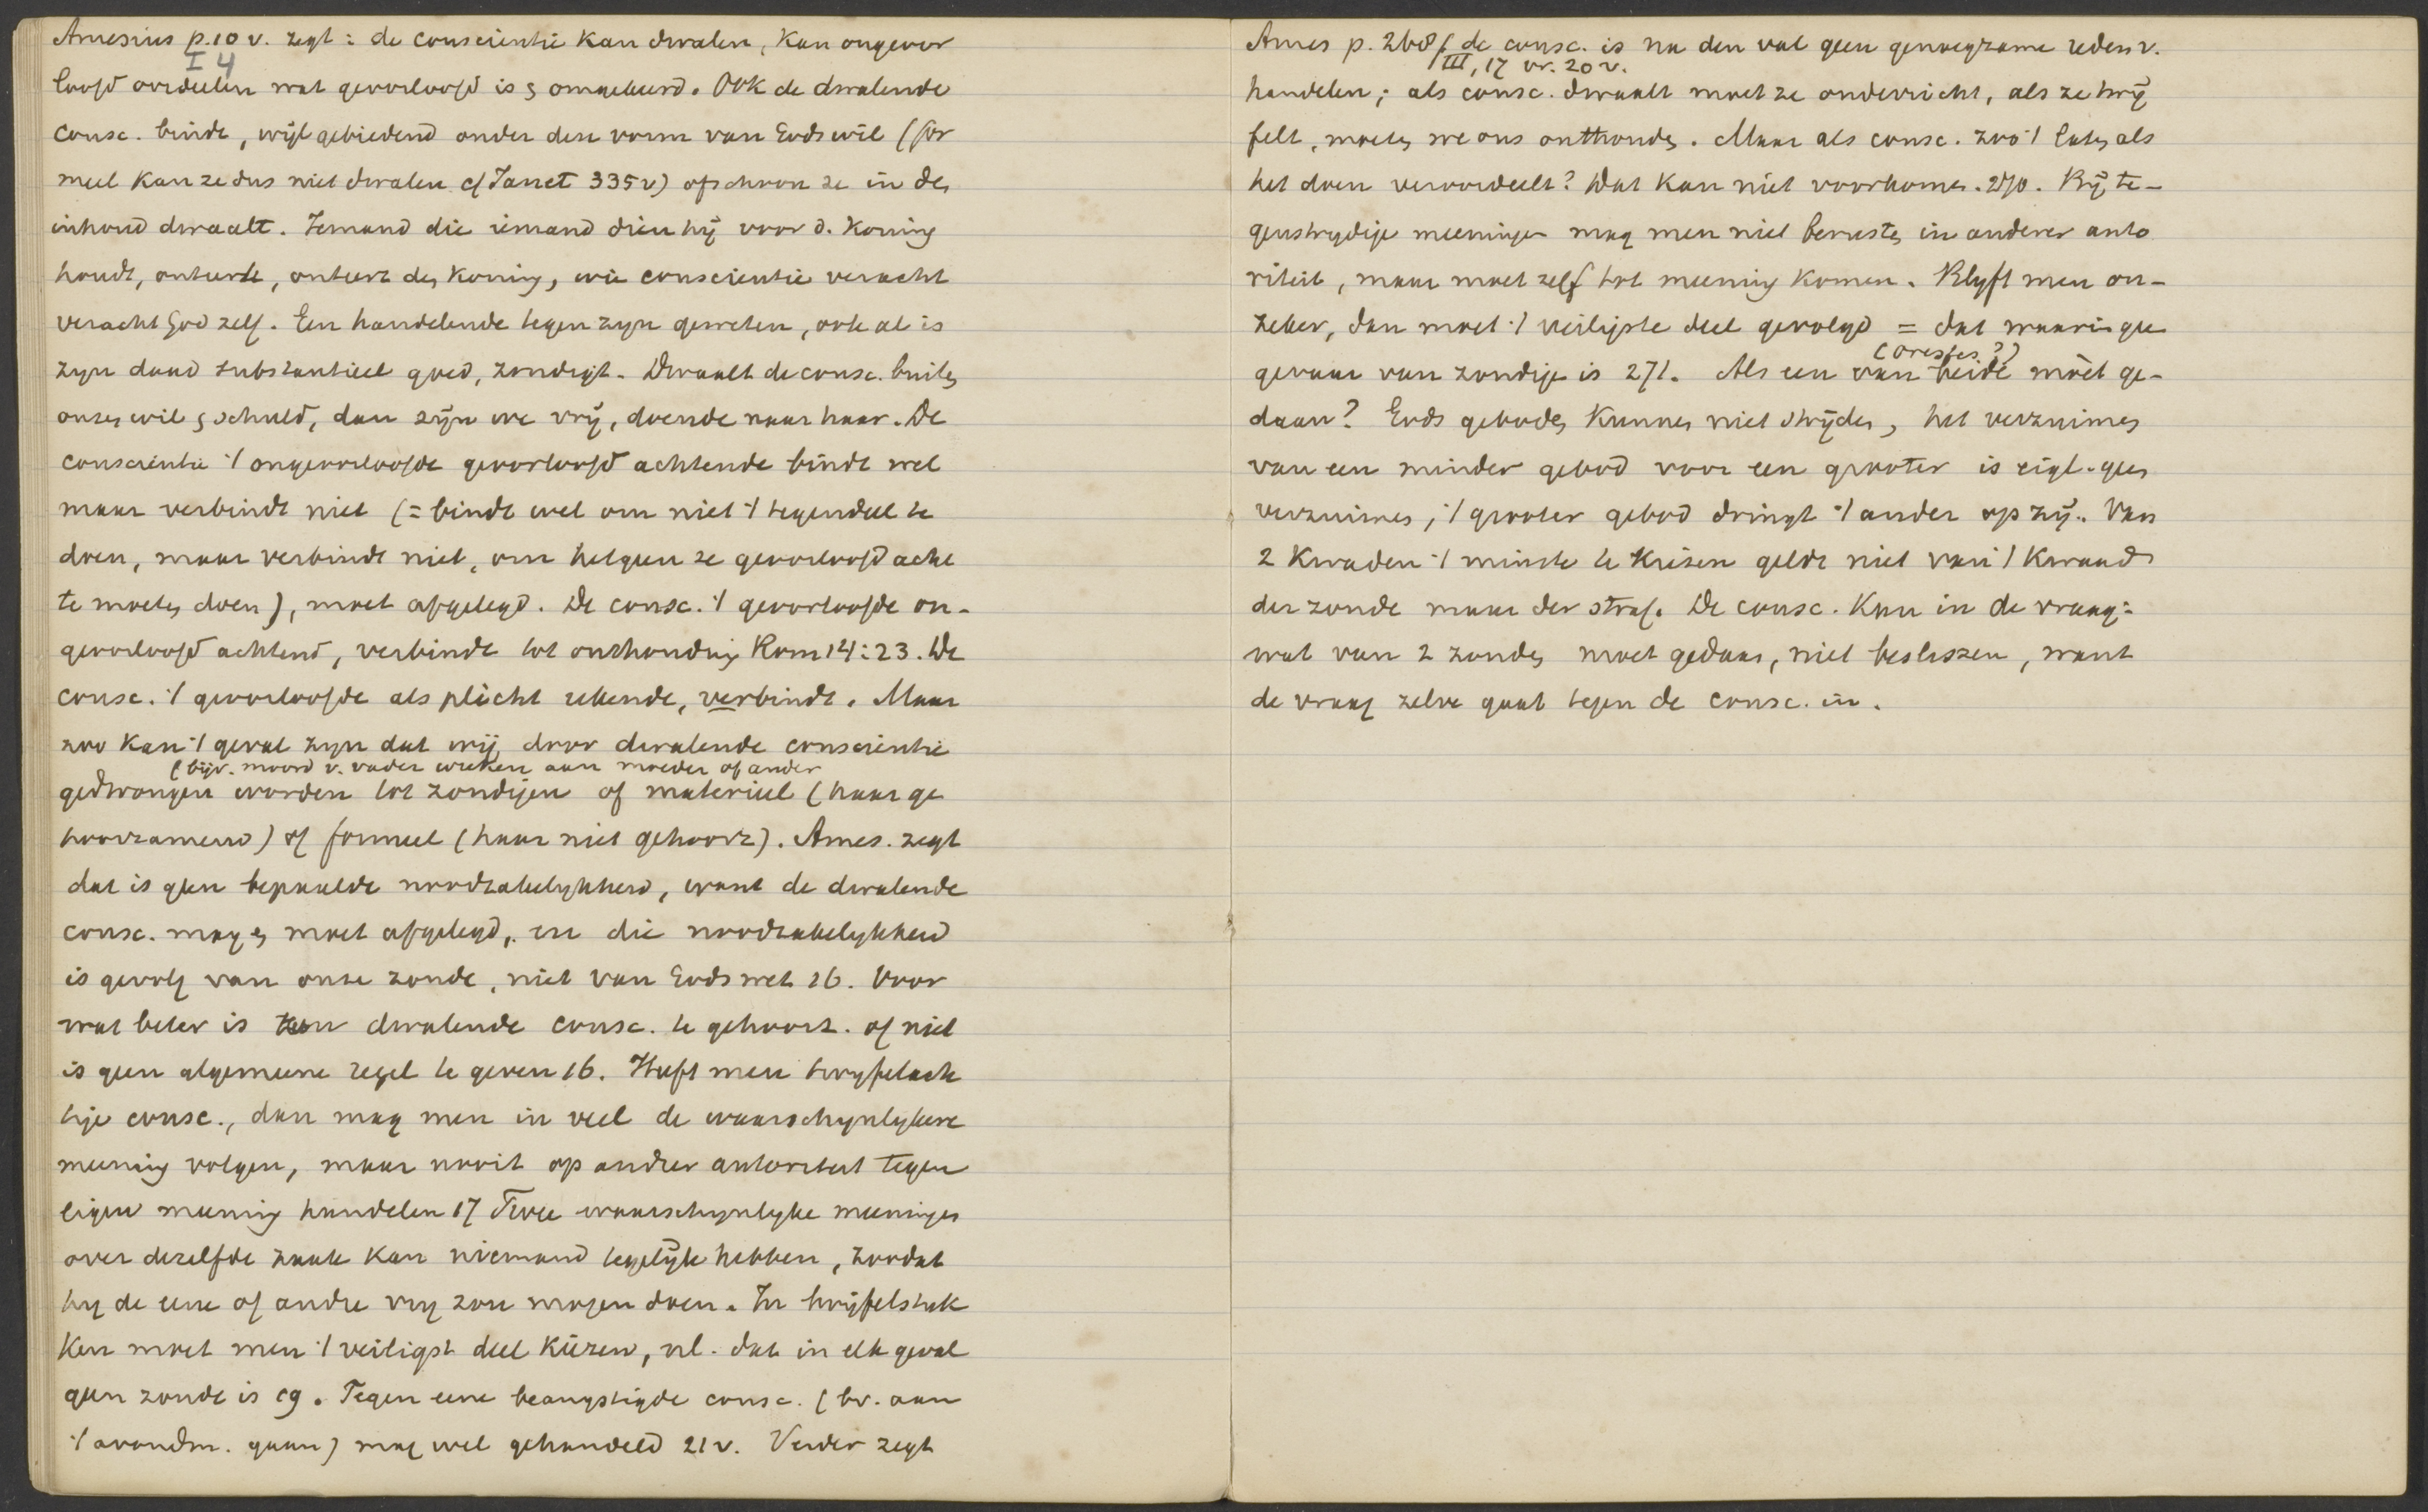 Amesius p.10 v. zegt: de conscientie kan dwalen, kan ongeoor
I 4
loofd oordeelen wat geoorloofd is & omgekeerd. Ook de dwalende
consc. bindt, wijl gebiedend onder den vorm van Gods wil (for
meel kan ze dus niet dwalen cf Janet 335v) ofschoon ze in den
inhoud dwaalt. Iemand die iemand dien hij voor d. Koning
houdt, onteerde, onteert den Koning, wie conscientie veracht
veracht God zelf. Een handelende tegen zyn geweten, ook al is
zyn daad substantieel goed, zondigt. Dwaalt de consc. buiten
onzen wil & schuld, dan zijn we vrij, doende naar haar. De
conscientie 't ongeoorloofde geoorloofd achtende bindt wel
maar verbindt niet (= bindt wel om niet 't tegendeel te
doen, maar verbindt niet, om hetgeen ze geoorloofd acht
te moeten doen), moet afgelegd. De consc. 't geoorloofde on-
geoorloofd achtend, verbindt tot onthouding Rom 14:23. De
consc. 't geoorloofde als plicht rekende, verbindt. Maar
zoo kan 't geval zyn dat wij door dwalende conscientie
(bijv. moord v. vader wreken aan moeder of ander
gedwongen worden tot zondigen of materieel (haar ge
hoorzamend) of formeel (haar niet gehoorz). Ames. zegt
dat is geen bepaalde noodzakelykheid, want de dwalende
consc. mag en moet afgelegd, en die noodzakelykheid
is gevolg van onze zonde, niet van Gods wet 16. Voor
wat beter is een dwalende consc. te gehoorz. of niet
is geen algemeene regel te geven 16. Heeft men twyfelach
tige consc., dan mag men in veel de waarschynlykere
meening volgen, maar nooit op andrer autoriteit tegen
eigen meening handelen 17 Twee waarschynlyke meeningen
over dezelfde zaak kan niemand tegelijk hebben, zoodat
hy de eene of andre vry zou mogen doen. In twijfelstuk
ken moet men 't veiligst deel kiezen, nl. dat in elk geval
geen zonde is 19. Tegen eene beangstigde consc. (bv. aan
't avondm. gaan) mag wel gehandeld 21v. Verder zegt
Ames p. 268 de consc. is na den val geen genoegzame reden v.
III, 17 vr. 20 v.
handelen; als consc. dwaalt moet ze onderricht, als ze twij
felt, moeten we ons onthouden. Maar als consc. zoo 't laten als
het doen veroordeelt? Dat kan niet voorkomen. 270. Bij te-
genstrydige meeningen mag men niet berusten in anderer auto
riteit, maar moet zelf tot meening komen. Blyft men on-
zeker, dan moet 't veiligste deel gevolgd = dat waarin geen
gevaar van zondigen is 271. Als een van beide mòet ge-
(Orestes??)
daan? Gods geboden kunnen niet strijden, het verzuimen
van een minder gebod voor een grooter is eigl. geen
verzuimen, 't grooter gebod dringt 't ander op zij. Van
2 Kwaden 't minste te kiezen geldt niet van 't kwaad
der zonde maar der straf. De consc. kan in de vraag:
wat van 2 zonden moet gedaan, niet beslissen, want
de vraag zelve gaat tegen de consc. in.